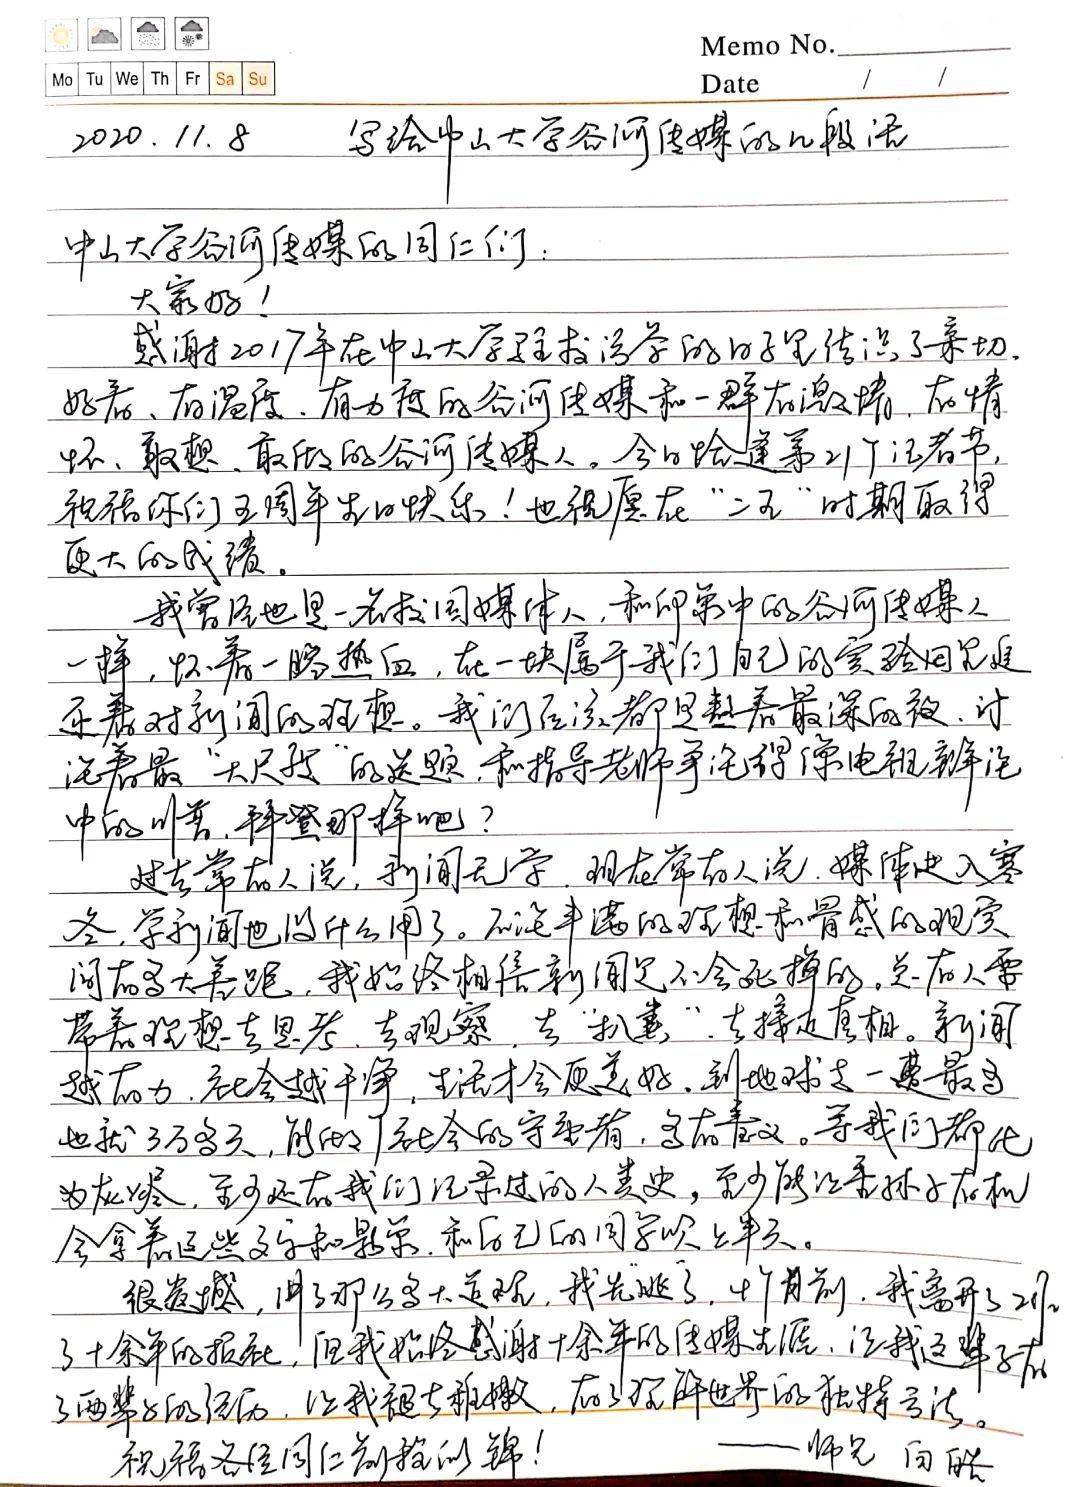 Memo No.
Mo Tu We Th Fr Sa Su
Date / /
2020.11.8 写给中山大学谷河传媒的几段话
中山大学谷河传媒的同仁们：
大家好！
感谢2017年在中山大学主校区学的日子里结识了亲切、
好看、有温度、有力度的谷河传媒和一群有激情、有情
怀、敢想、敢做的谷河传媒人。今日恰逢第21个记者节，
祝福你们五周年生日快乐！也祝愿在“二五”时期取得
更大的成绩。
我曾经也是一名校园媒体人，和印象中的谷河传媒人
一样，怀着一腔热血，在一块属于我们自己的实验田里延
续着对新闻的理想。我们应该都是熬着最深的夜、讨
论着最“大尺度”的选题，和指导老师争论得像电视辩论
中的川普、拜登那样吧？
过去常有人说，新闻无学，现在常有人说，媒体进入寒
冬，学新闻也没什么用了。不论丰满的理想和骨感的现实
间有多大差距，我始终相信新闻是不会死掉的。总有人要
带着理想去思考、去观察、去“扒粪”、去接近真相。新闻
越有力，社会越干净，生活才会更美好。到地球走一遭最多
也就3万多天，能做个社会的守望者，多有意义。等我们都化
为灰烬，至少还有我们记录过的人类史，至少能让重孙子有机
会拿着这些文字和影像，和自己的同学吹上半天。
很遗憾，讲了那么多大道理，我先“逃”了，4个月前，我离开了
了十余年的报社，但我始终感谢十余年的传媒生涯，让我这辈子有
了两辈子的经历，让我褪去稚嫩，有了理解世界的独特方法。
祝福各位同仁前程似锦！ ——师兄 向皓